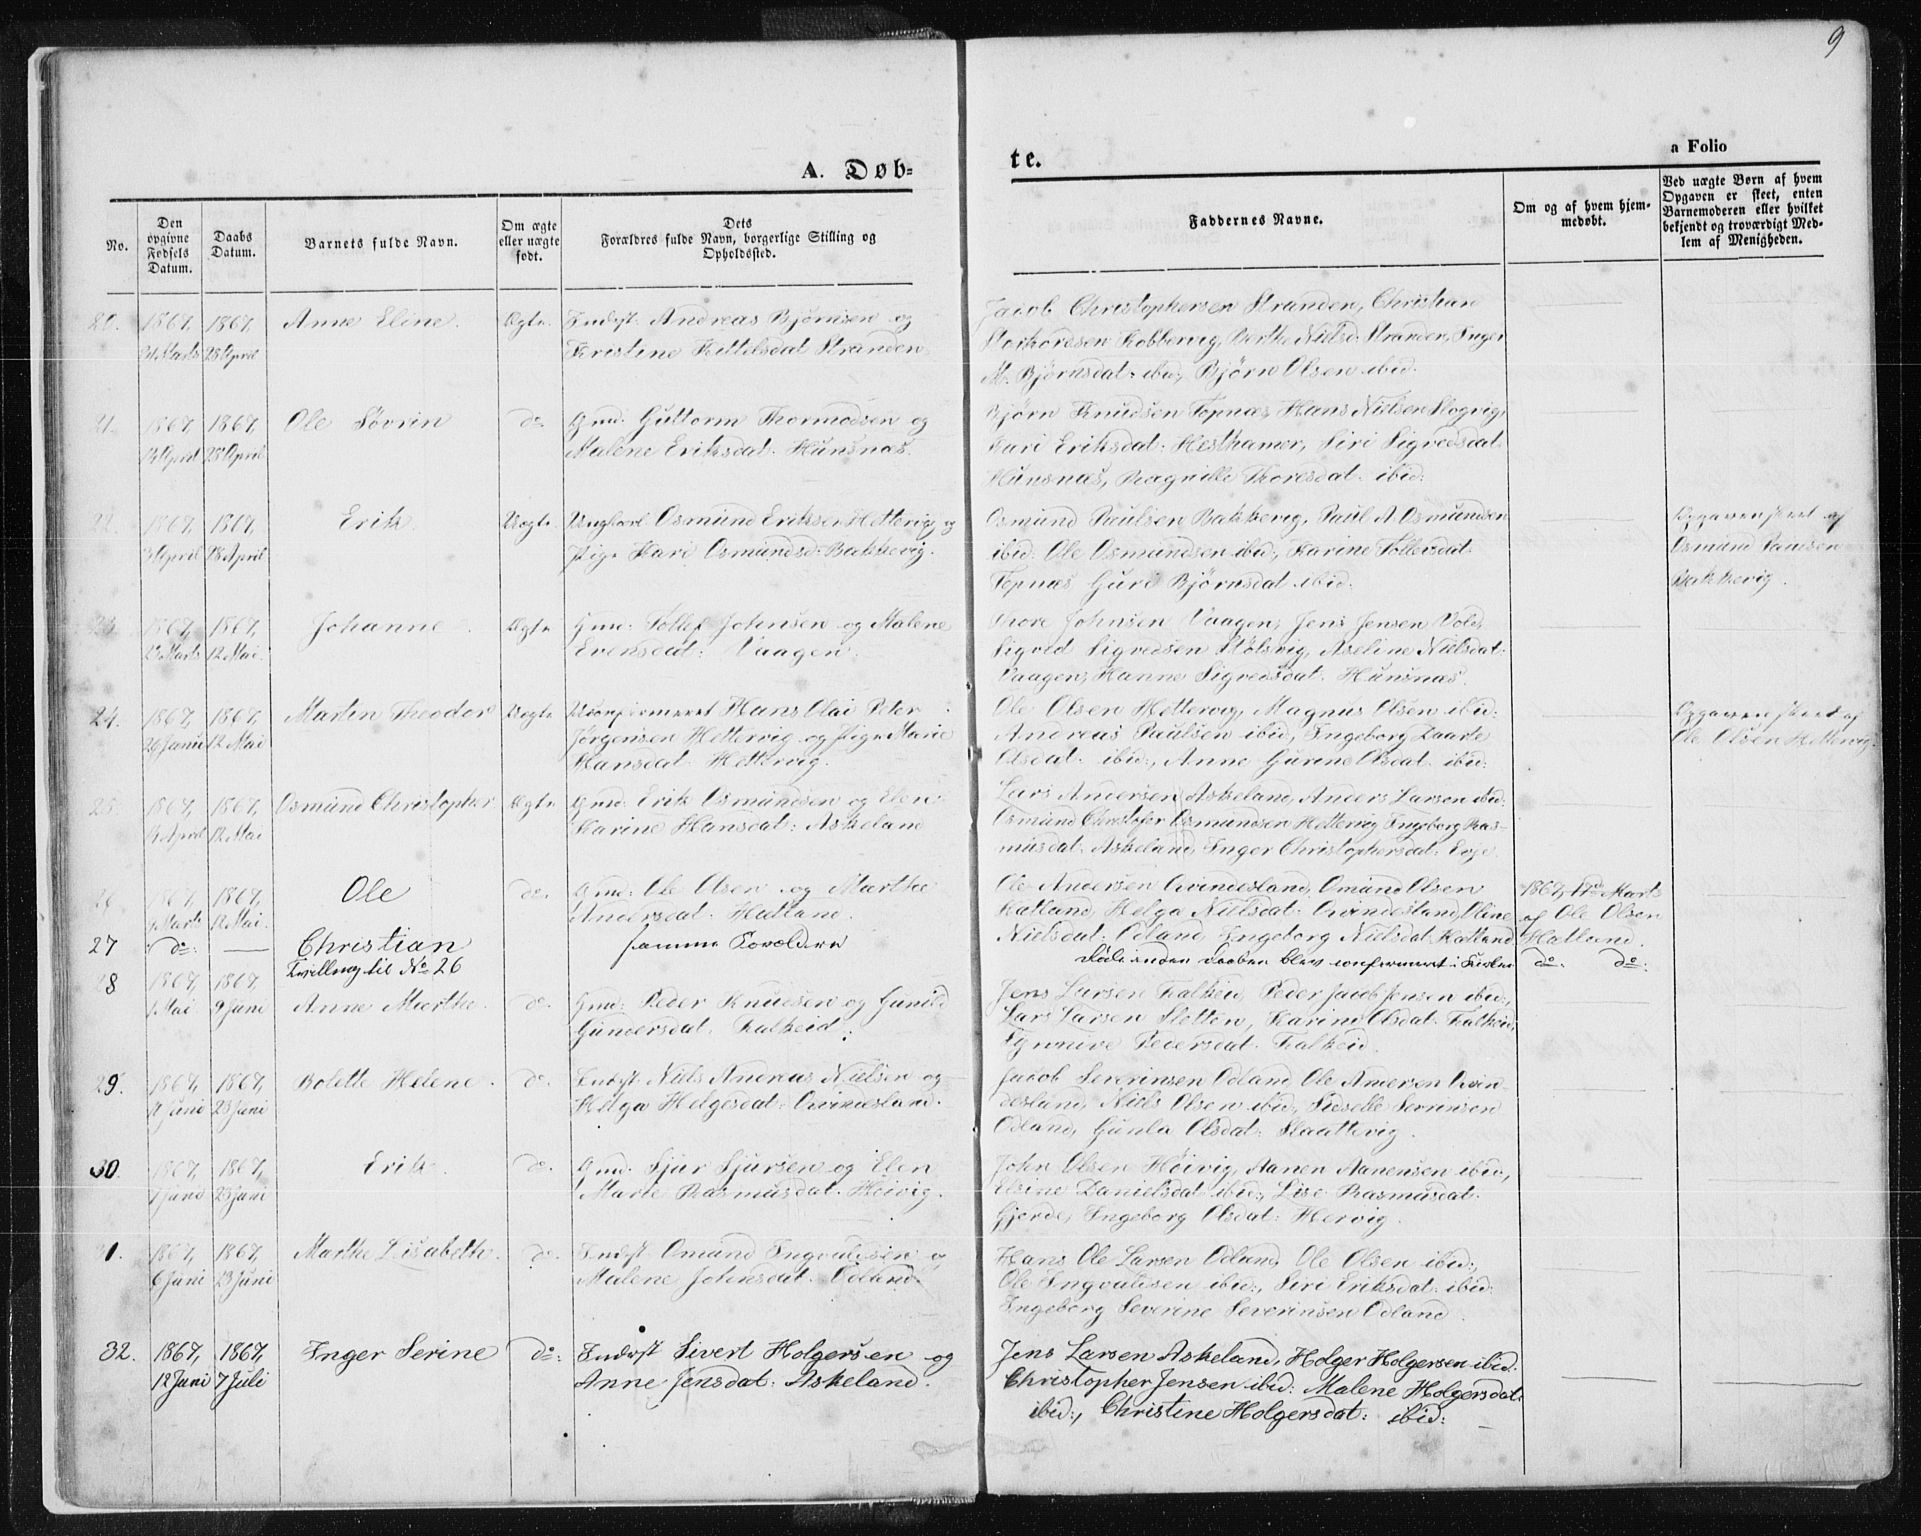 9
A. Døb-
te.
a Folio
No.
Den opgivne Fødsels Datum.
Daabs Datum.
Barnets fulde Navn.
Om ægte eller uægte født.
Dets Forældres fulde Navn, borgerlige Stilling og Opholdssted.
Faddernes Navne.
Om og af hvem hjemmedøbt.
Ved uægte Børn af hvem Opgaven er skeet, enten Barnemoderen eller hvilket bekjendt og troværdigt Medlem af Menigheden.
20. 1867, 1867, Anne Eline. Ægte. Inderst Andreas Bjørnsen og
Marts 28 April Kristine Kittelsdat Stranden
Jacob Christophersen Stranden, Christian
Kobbervig, Berthe Nielsd: Stranden, Inger
M. Bjørnsdat: ibid:, Bjørn Olsen ibid:
21. 1867, 1867, Ole Søvrin do. Gmd. Guttorm Thormodsen og
April 28 April Malene Eriksdat: Hunsnæs.
Bjørn Knudsen Topnæs, Hans Nielsen Slogvig,
Kari Eriksdat: Hesthamer, Siri Sigvedsdat:
Hunsnæs, Ragnille Thoresdat: ibid:
22. 1867, 1867, Erik Uægte Ungkarl Osmund Eriksen Hettervig og
April 28 April Pige Kari Osmundsd: Bakkevig.
Osmund Paulsen Bakkevig, Paul A. Osmundsen
ibid: Ole Osmundsen ibid:, Karine Tollevsdat:
Topnæs Guri Bjørnsdat ibid:
Opgaven skeet af
Osmund Paulsen
Bakkevig.
23. 1867, 1867, Johanne Ægte Gmd. Tollef Johnsen og Malene
Marts 12 Mai. Evensdat: Vaagen.
Thore Johnsen Vaagen, Jens Jensen Vold,
Sigved Sigvedsen Stølsvig, Aseline Nielsdat:
Vaagen, Hanne Sigvedsdat: Hunsnæs.
24. 1867, 1867, Martin Theodor Uægte Hans Olai Peter
26 Janu 12 Mai Jørgensen Hettervig og Pige Marie
Hansdat: Hettervig.
Ole Olsen Hettervig, Magnus Olsen ibid:
Andreas Paulsen ibid:, Ingeborg
Olsdat: ibid:, Anne Gurine Olsdat: ibid:
Opgaven skeet af
Ole Olsen Hettervig.
25. 1867, 1867, Osmund Christopher Ægte Gmd: Erik Osmundsen og Elen
April 12 Mai Karine Hansdat: Askeland
Lars Andersen Askeland, Anders Larsen ibid:
Osmund Christofer Osmundsen Hettervig Ingeborg Ras-
musdat: Askeland, Inger Christophersdat: Evje.
26. 1867, 1867, Ole do. Gmd: Ole Olsen og Marthe
Marts 12 Mai Andersdat: Hatland.
Ole Andersen Qvindesland, Omund Olsen
Hatland, Helga Nielsdat: Qvindesland, Oline
Nielsdat: Odland, Ingeborg Nielsdat: Hatland
1867, Marts
af Ole Olsen
Hatland.
27 do: — Christian samme Forældre
Tvilling til No 26
Døde inden Daaben blev confirmeret i Kirken do: do:
28 1867, 1867, Anne Marthe. do. Gmd: Peder Knudsen og Gunild
1 Mai 9 Juni Gundersdat: Falkeid.
Jens Larsen Falkeid, Peder Jacob Jensen ibid:,
Lars Larsen Sletten, Karine Olsdat: Falkeid,
Synnive Pedersdat: Falkeid.
29. 1867, 1867, Bolette Helene. do. Inderst Niels Andreas Nielsen og
Juni 23 Juni Helga Helgesdat: Qvindesland.
Jacob Severinsen Odland, Ole Andersen Qvin-
desland, Niels Olsen ibid:, Sevrinsen
Odland, Gunla Olsdat: Slaattevig.
30. 1867, 1867, Erik. do. Gmd. Sjur Sjursen og Elen
1 Juni 23 Juni Marte Rasmusdat: Høivig.
John Olsen Høivig, Aanen Aanensen ibid:,
Elsine Danielsdat: ibid:, Lise Rasmusdat:
Gjerde, Ingeborg Olsdat: Hervig.
31. 1867, 1867, Marthe Lisabeth. do. Inderst Omund Ingvaldsen og
6 Juni 23 Juni Malene Johnsdat: Odland.
Hans Ole Larsen Odland, Ole Olsen ibid:,
Ole Ingvaldsen ibid:, Siri Eriksdat: ibid:
Ingeborg Severine Severinsen Odland
32. 1867, 1867, Inger Serine do: Inderst Sivert Holgersen og
12 Juni 7 Juli Anne Jensdat: Askeland.
Jens Larsen Askeland, Holger Holgersen ibid:
Christopher Jensen ibid: Malene Holgersdat:
ibid:, Christine Holgersdat: ibid: